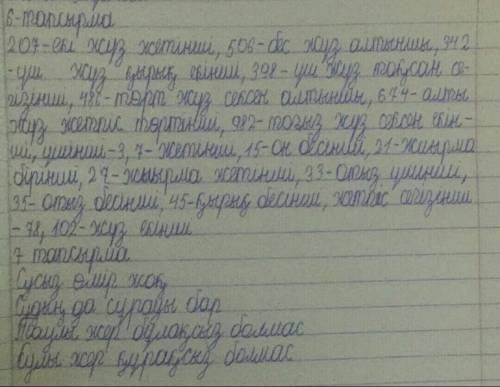 6-тапсырма
207-екі жүз жетінші, 506-бес жүз алтыншы, 342
-үш жүз қырық екінші, 398-үш жүз тоқсан се-
гізінші, 486-төрт жүз сексен алтыншы, 674-алты
жүз жетпіс төртінші, 982-тоғыз жүз сексен екін-
ші, үшінші-3, 7-жетінші, 15-он бесінші, 21-жиырма
бірінші, 27-жиырма жетінші, 33-отыз үшінші,
35-отыз бесінші, 45-қырық бесінші, жетпіс сегізінші
-78, 102-жүз екінші
7 тапсырма
Сусыз өмір жоқ
Судың да сұрауы бар
Таулы жер бұлақсыз болмас
Сулы жер құрақсыз болмас